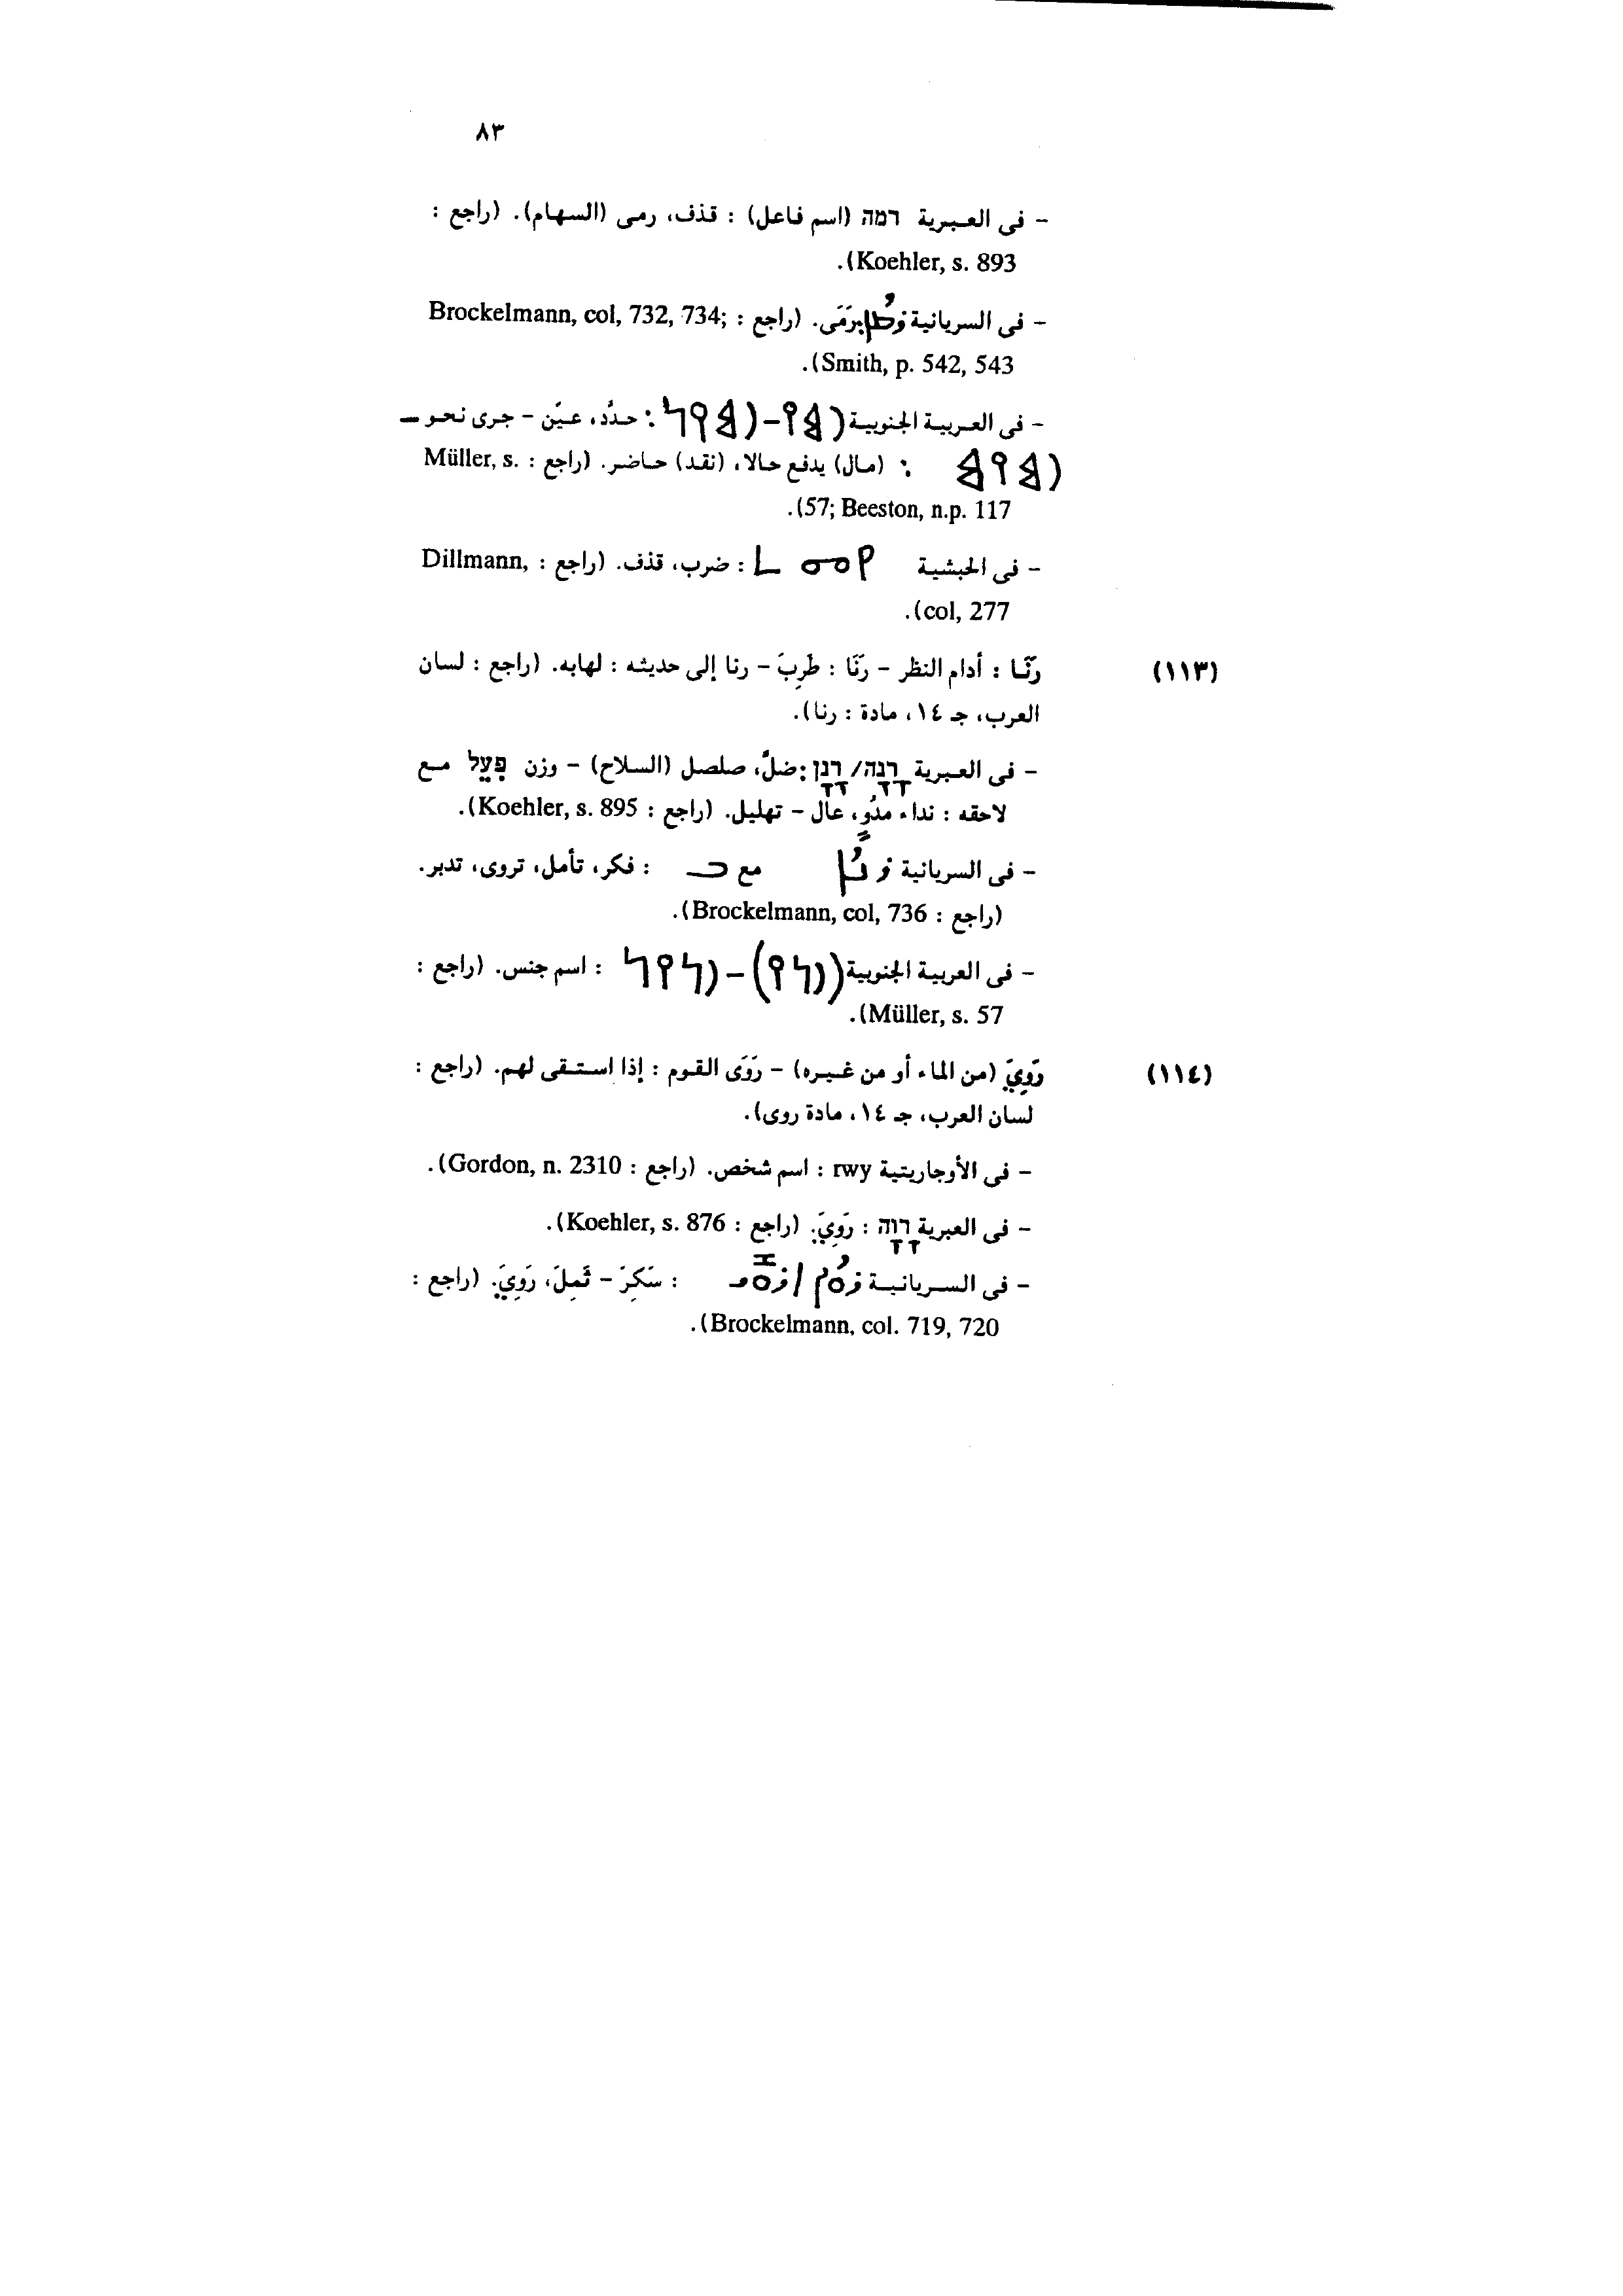 ٨٣
- فى العبرية רמה (اسم فاعل) : قذف، رمى (السهام). (راجع :
Koehler, s. 893).
- فى السريانية ܪܡܐ : رَمَى. (راجع : Brockelmann, col, 732, 734;
Smith, p. 542, 543).
- فى العربية الجنوبية 𐩧𐩣𐩺 - 𐩧𐩣𐩺𐩬 : حدَّد، عيَّن - جرى نحو –
𐩧𐩣𐩺𐩣 : (مال) يدفع حالا، (نقد) حاضر. (راجع : Müller, s.
57; Beeston, n.p. 117).
- فى الحبشية : ضرب، قذف. (راجع : Dillmann,
col, 277).
(١١٣) رَنَّا : أدام النظر - رَنَا : طَرِبَ - رنا إلى حديثه : لهابه. (راجع : لسان
العرب، جـ ١٤، مادة : رنا).
- فى العبرية רָנָה/ רָנָן : ضلَّ، صلصل (السلاح) - وزن פִּעֵל مع
لاحقه : نداء مدُوٍّ، عال - تهليل. (راجع : Koehler, s. 895).
- فى السريانية ܪܢܐ مع ܒ : فكر، تأمل، تروى، تدبر.
(راجع : Brockelmann, col, 736).
- فى العربية الجنوبية (𐩧𐩬𐩺) - 𐩧𐩬𐩺𐩬 : اسم جنس. (راجع :
Müller, s. 57).
(١١٤) رَوِيَ (من الماء أو من غيره) - رَوَى القوم : إذا استقى لهم. (راجع :
لسان العرب، جـ ١٤، مادة روى).
- فى الأوجاريتية rwy : اسم شخص. (راجع : Gordon, n. 2310).
- فى العبرية רָוָה : رَوِيَ. (راجع : Koehler, s. 876).
- فى السريانية : سَكِرَ - ثَمِلَ، رَوِيَ. (راجع :
Brockelmann, col. 719, 720).